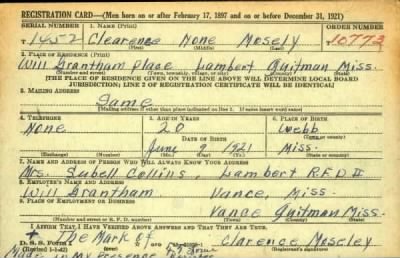 REGISTRATION CARD—(Men born on or after February 17, 1897 and on or before December 31, 1921)
SERIAL NUMBER 1. NAME (Print) ORDER NUMBER
1452 Clearence None Mosely 10773
(First) (Middle) (Last)
2. PLACE OF RESIDENCE (Print)
Will Grantham place Lambert Quitman Miss.
(Number and street) (Town, township, village, or city) (County) (State)
[THE PLACE OF RESIDENCE GIVEN ON THE LINE ABOVE WILL DETERMINE LOCAL BOARD
JURISDICTION; LINE 2 OF REGISTRATION CERTIFICATE WILL BE IDENTICAL]
3. MAILING ADDRESS
Same
[Mailing address if other than place indicated on line 2. If same insert word same]
4. TELEPHONE 5. AGE IN YEARS 6. PLACE OF BIRTH
None 20 Webb
DATE OF BIRTH (Town or county)
June 9 1921 Miss.
(Exchange) (Number) (Mo.) (Day) (Yr.) (State or country)
7. NAME AND ADDRESS OF PERSON WHO WILL ALWAYS KNOW YOUR ADDRESS
Mrs. Lubell Collins Lambert R.F.D. II
8. EMPLOYER'S NAME AND ADDRESS
Will Grantham Vance, Miss.
9. PLACE OF EMPLOYMENT OR BUSINESS
Vance Quitman Miss.
(Number and street or R. F. D. number) (Town) (County) (State)
I AFFIRM THAT I HAVE VERIFIED ABOVE ANSWERS AND THAT THEY ARE TRUE.
+ The Mark Of Clarence Moseley
D. S. S. Form 1
(Revised 1-1-42)
Made in My Presence